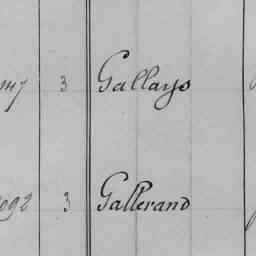 3 Gallays
3 Gallerand